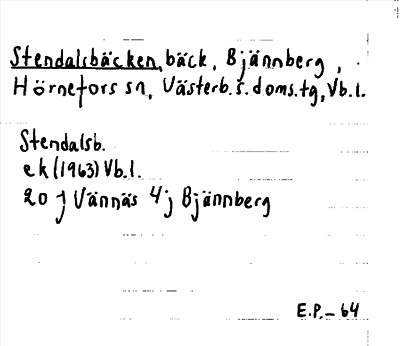 Stendalsbäcken, bäck, Bjännberg,
Hörnefors sn, Västerb.s.doms.tg, Vb.l.
Stendalsb.
ek (1963) Vb.l.
20 j Vännäs 4 j Bjännberg
E.P. - 64